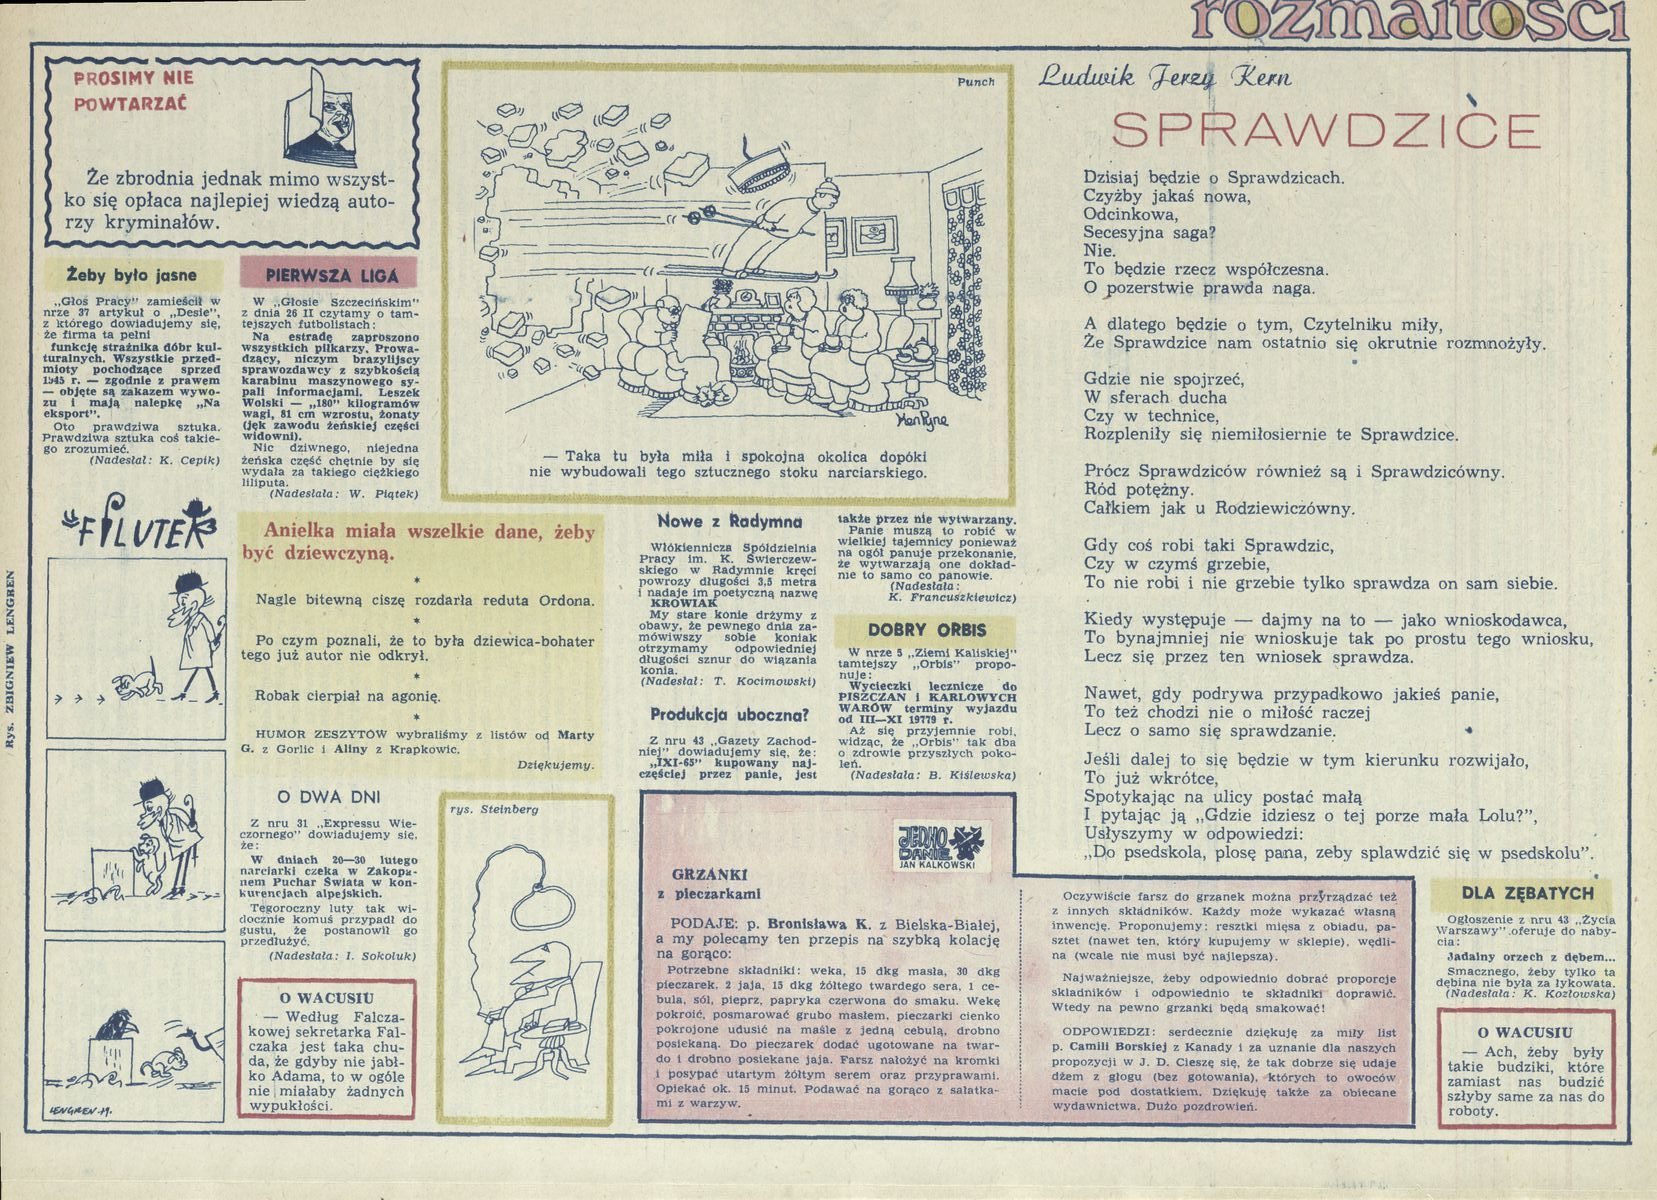 rozmaitości
PROSIMY NIE
POWTARZAĆ
Że zbrodnia jednak mimo wszyst-
ko się opłaca najlepiej wiedzą auto-
rzy kryminałów.
Żeby było jasne
„Głos Pracy” zamieścił w
nrze 37 artykuł o „Desie”,
z którego dowiadujemy się,
że firma ta pełni
funkcję strażnika dóbr kul-
turalnych. Wszystkie przed-
mioty pochodzące sprzed
1945 r. — zgodnie z prawem
— objęte są zakazem wywo-
zu i mają nalepkę „Na
eksport”.
Oto prawdziwa sztuka.
Prawdziwa sztuka coś takie-
go zrozumieć.
(Nadesłał: K. Cepik)
PIERWSZA LIGA
W „Głosie Szczecińskim”
z dnia 26 II czytamy o tam-
tejszych futbolistach:
Na estradę zaproszono
wszystkich piłkarzy. Prowa-
dzący, niczym brazylijscy
sprawozdawcy z szybkością
karabinu maszynowego sy-
pali informacjami. Leszek
Wolski — „180” kilogramów
wagi, 81 cm wzrostu, żonaty
(jęk zawodu żeńskiej części
widowni).
Nic dziwnego, niejedna
żeńska część chętnie by się
wydała za takiego ciężkiego
liliputa.
(Nadesłała: W. Piątek)
Punch
KenPyne
— Taka tu była miła i spokojna okolica dopóki
nie wybudowali tego sztucznego stoku narciarskiego.
FILUTEK
Rys. ZBIGNIEW LENGREN
LENGREN.79.
Anielka miała wszelkie dane, żeby
być dziewczyną.
*
Nagle bitewną ciszę rozdarła reduta Ordona.
*
Po czym poznali, że to była dziewica-bohater
tego już autor nie odkrył.
*
Robak cierpiał na agonię.
*
HUMOR ZESZYTÓW wybraliśmy z listów od Marty
G. z Gorlic i Aliny z Krapkowic.
Dziękujemy.
O DWA DNI
Z nru 31 „Expressu Wie-
czornego” dowiadujemy się,
że:
W dniach 20—30 lutego
narciarki czeka w Zakopa-
nem Puchar Świata w kon-
kurencjach alpejskich.
Tegoroczny luty tak wi-
docznie komuś przypadł do
gustu, że postanowił go
przedłużyć.
(Nadesłała: I. Sokoluk)
O WACUSIU
— Według Falcza-
kowej sekretarka Fal-
czaka jest taka chu-
da, że gdyby nie jabł-
ko Adama, to w ogóle
nie miałaby żadnych
wypukłości.
rys. Steinberg
Nowe z Radymna
Włókiennicza Spółdzielnia
Pracy im. K. Świerczew-
skiego w Radymnie kręci
powrozy długości 3,5 metra
i nadaje im poetyczną nazwę
KROWIAK
My stare konie drżymy z
obawy, że pewnego dnia za-
mówiwszy sobie koniak
otrzymamy odpowiedniej
długości sznur do wiązania
konia.
(Nadesłał: T. Kocimowski)
Produkcja uboczna?
Z nru 43 „Gazety Zachod-
niej” dowiadujemy się, że:
„IXI-65” kupowany naj-
częściej przez panie, jest
także przez nie wytwarzany.
Panie muszą to robić w
wielkiej tajemnicy ponieważ
na ogół panuje przekonanie,
że wytwarzają one dokład-
nie to samo co panowie.
(Nadesłała:
K. Francuszkiewicz)
DOBRY ORBIS
W nrze 5 „Ziemi Kaliskiej”
tamtejszy „Orbis” propo-
nuje:
Wycieczki lecznicze do
PISZCZAN i KARLOWYCH
WARÓW terminy wyjazdu
od III—XI 19779 r.
Aż się przyjemnie robi,
widząc, że „Orbis” tak dba
o zdrowie przyszłych poko-
leń.
(Nadesłała: B. Kiślewska)
JEDNO
DANIE
JAN KALKOWSKI
GRZANKI
z pieczarkami
PODAJE: p. Bronisława K. z Bielska-Białej,
a my polecamy ten przepis na szybką kolację
na gorąco:
Potrzebne składniki: weka, 15 dkg masła, 30 dkg
pieczarek, 2 jaja, 15 dkg żółtego twardego sera, 1 ce-
bula, sól, pieprz, papryka czerwona do smaku. Wekę
pokroić, posmarować grubo masłem, pieczarki cienko
pokrojone udusić na maśle z jedną cebulą, drobno
posiekaną. Do pieczarek dodać ugotowane na twar-
do i drobno posiekane jaja. Farsz nałożyć na kromki
i posypać utartym żółtym serem oraz przyprawami.
Opiekać ok. 15 minut. Podawać na gorąco z sałatka-
mi z warzyw.
Oczywiście farsz do grzanek można przyrządzać też
z innych składników. Każdy może wykazać własną
inwencję. Proponujemy: resztki mięsa z obiadu, pa-
sztet (nawet ten, który kupujemy w sklepie), wędli-
na (wcale nie musi być najlepsza).
Najważniejsze, żeby odpowiednio dobrać proporcje
składników i odpowiednio te składniki doprawić.
Wtedy na pewno grzanki będą smakować!
ODPOWIEDZI: serdecznie dziękuję za miły list
p. Camili Borskiej z Kanady i za uznanie dla naszych
propozycji w J. D. Cieszę się, że tak dobrze się udaje
dżem z głogu (bez gotowania), których to owoców
macie pod dostatkiem. Dziękuję także za obiecane
wydawnictwa. Dużo pozdrowień.
Ludwik Jerzy Kern
SPRAWDZICE
Dzisiaj będzie o Sprawdzicach.
Czyżby jakaś nowa,
Odcinkowa,
Secesyjna saga?
Nie.
To będzie rzecz współczesna.
O pozerstwie prawda naga.
A dlatego będzie o tym, Czytelniku miły,
Że Sprawdzice nam ostatnio się okrutnie rozmnożyły.
Gdzie nie spojrzeć,
W sferach ducha
Czy w technice,
Rozpleniły się niemiłosiernie te Sprawdzice.
Prócz Sprawdziców również są i Sprawdzicówny.
Ród potężny.
Całkiem jak u Rodziewiczówny.
Gdy coś robi taki Sprawdzic,
Czy w czymś grzebie,
To nie robi i nie grzebie tylko sprawdza on sam siebie.
Kiedy występuje — dajmy na to — jako wnioskodawca,
To bynajmniej nie wnioskuje tak po prostu tego wniosku,
Lecz się przez ten wniosek sprawdza.
Nawet, gdy podrywa przypadkowo jakieś panie,
To też chodzi nie o miłość raczej
Lecz o samo się sprawdzanie.
Jeśli dalej to się będzie w tym kierunku rozwijało,
To już wkrótce,
Spotykając na ulicy postać małą
I pytając ją „Gdzie idziesz o tej porze mała Lolu?”,
Usłyszymy w odpowiedzi:
„Do psedskola, plosę pana, zeby splawdzić się w psedskolu”.
DLA ZĘBATYCH
Ogłoszenie z nru 43 „Życia
Warszawy” oferuje do naby-
cia:
Jadalny orzech z dębem...
Smacznego, żeby tylko ta
dębina nie była za łykowata.
(Nadesłała: K. Kozłowska)
O WACUSIU
— Ach, żeby były
takie budziki, które
zamiast nas budzić
szłyby same za nas do
roboty.